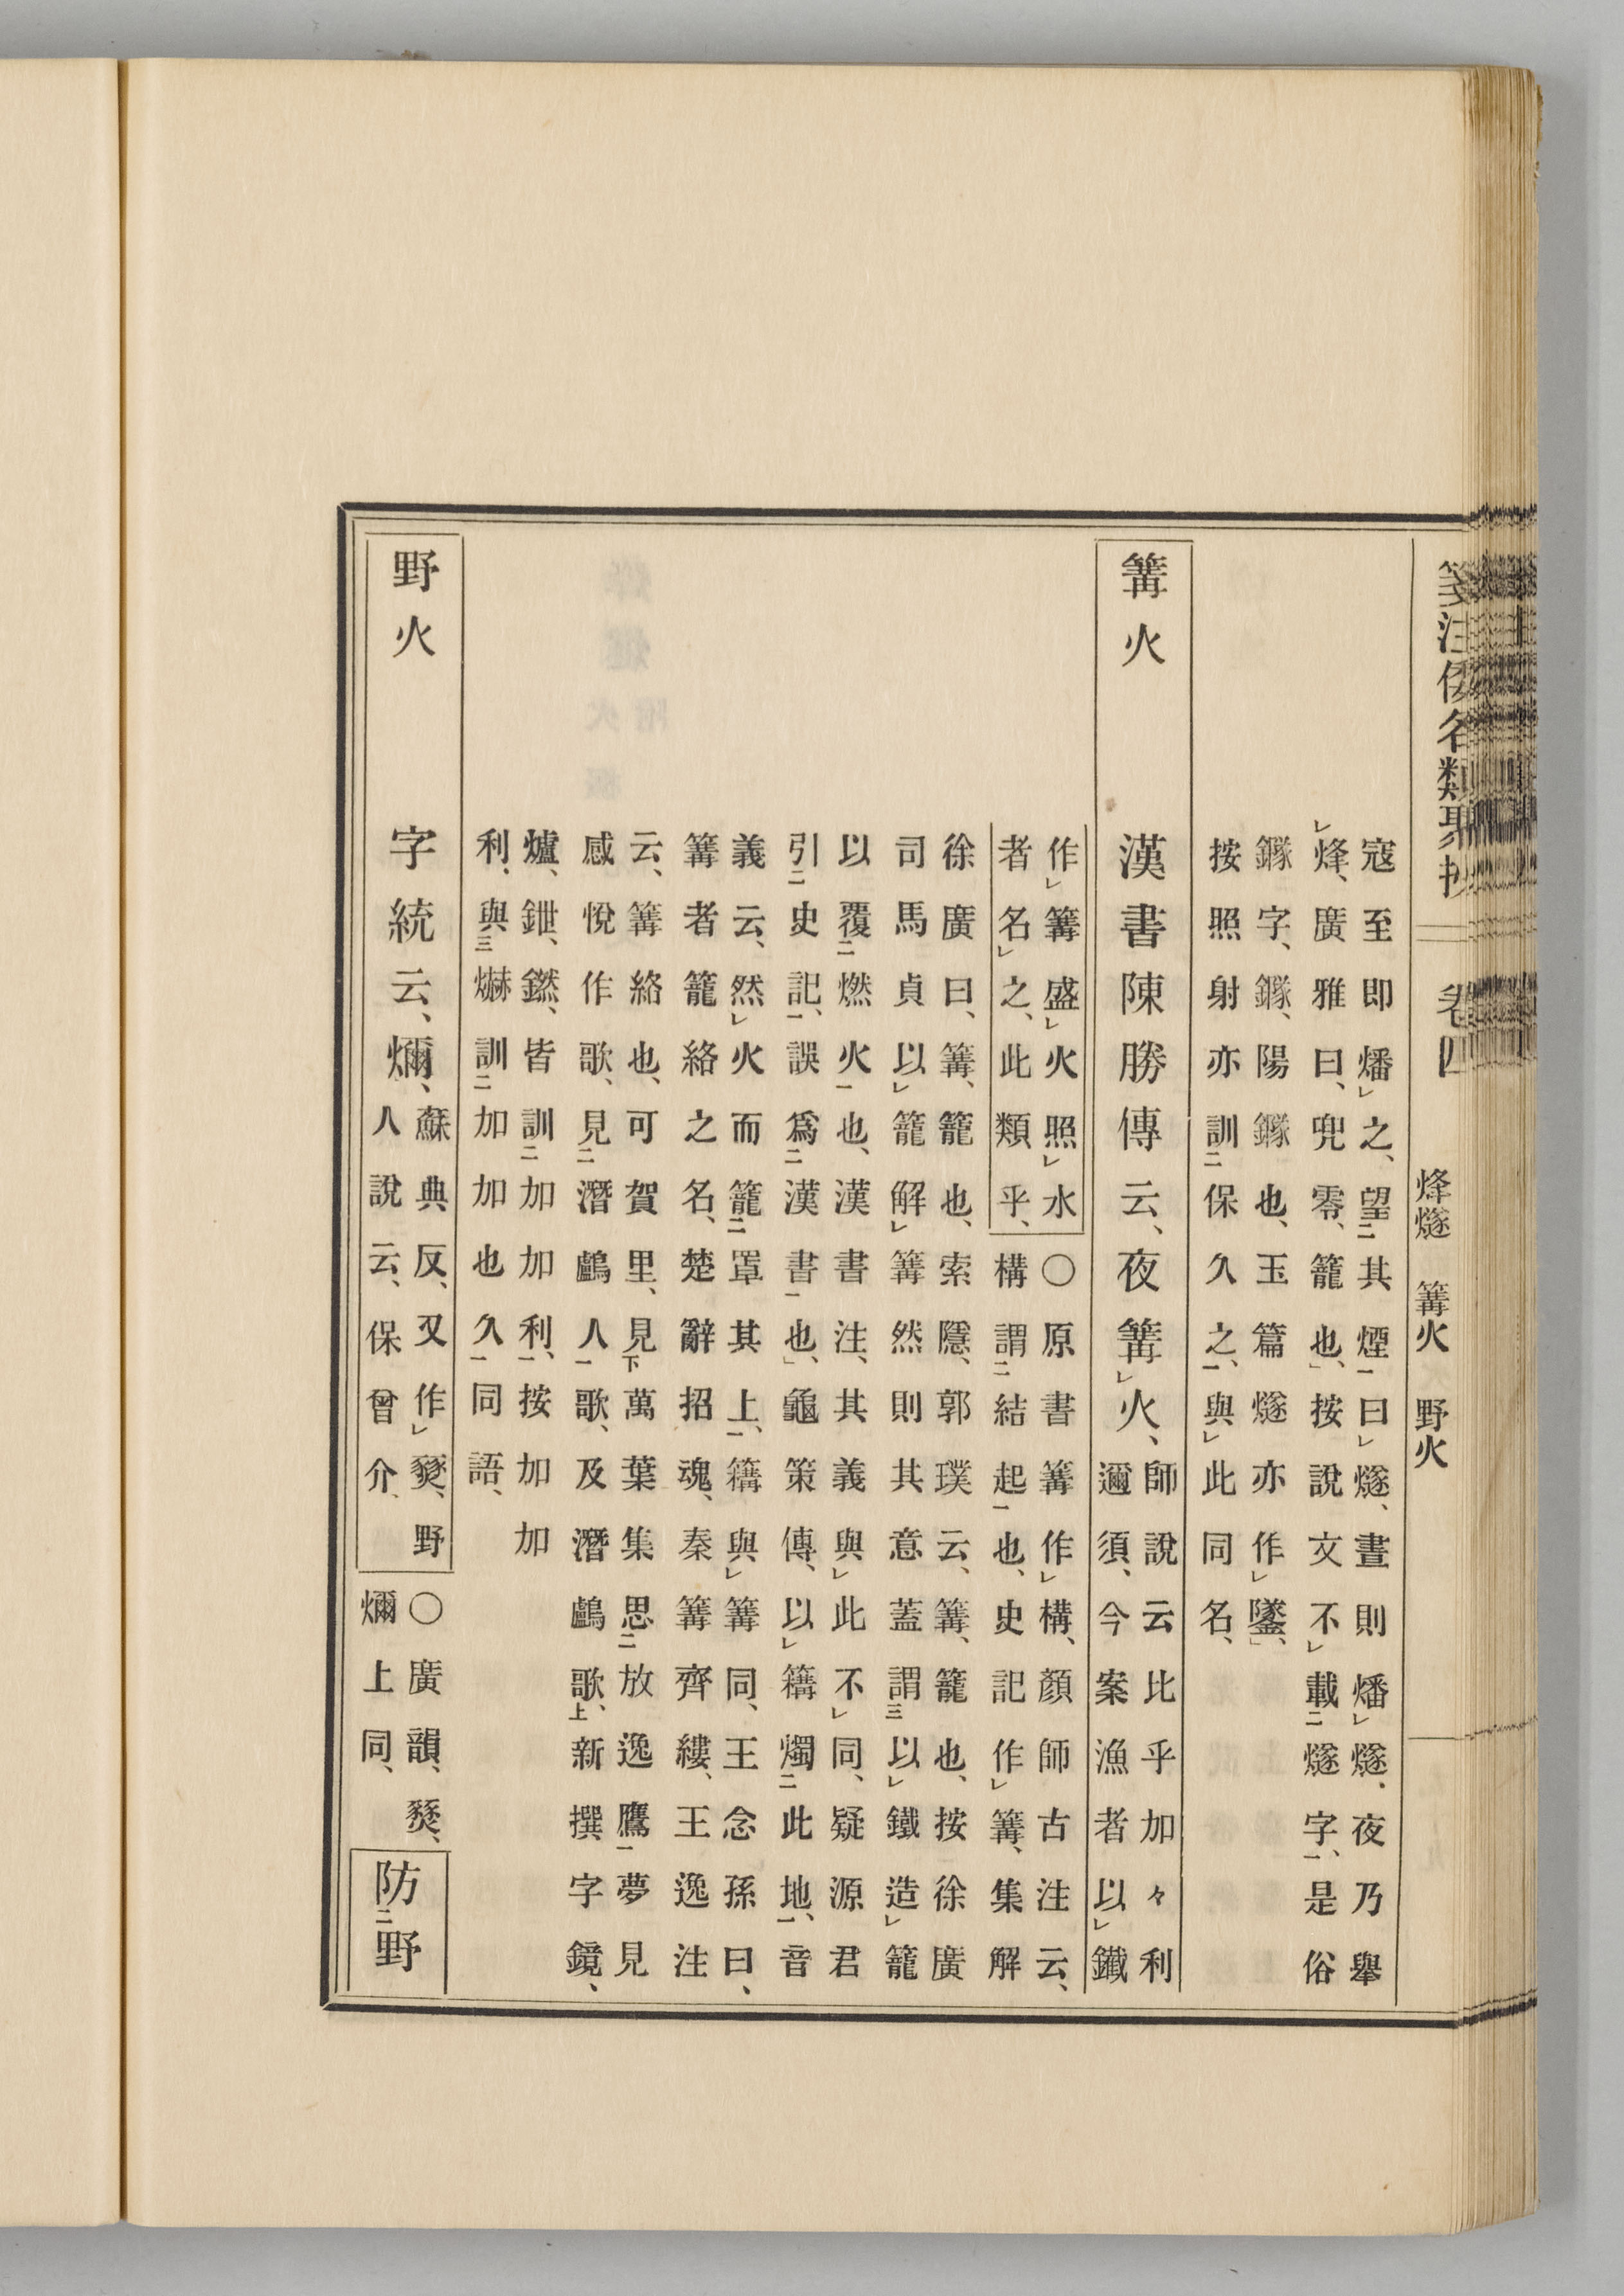 箋注倭名類聚抄 卷四 烽燧 篝火 野火
寇至卽燔㆑之、望㆓其煙㆒曰㆑燧、晝則燔㆑燧、夜乃擧
㆑烽、廣雅曰、兜零、籠也、按說文不㆑載㆓燧字㆒、是俗
鐆字、鐆、陽鐆也、玉篇燧亦作㆑䥙、
按照射亦訓㆓保久之㆒、與㆑此同名、
篝火
漢書陳勝傳云、夜篝㆑火、
師說云比乎加々利
邇須、今案漁者以㆑鐵
作㆑篝盛㆑火照㆑水
者名㆑之、此類乎、
○原書篝作㆑構、顏師古注云、
構謂㆓結起㆒也、史記作㆑篝、集解
徐廣曰、篝、籠也、索隱、郭璞云、篝、籠也、按徐廣
司馬貞以㆑籠解㆑篝然則其意蓋謂㆔以㆑鐵造㆑籠
以覆㆓燃火㆒也、漢書注、其義與㆑此不㆑同、疑源君
引㆓史記㆒、誤爲㆓漢書㆒也、龜策傳、以㆑籍燭㆓此地㆒、音
義云、然㆑火而籠㆓罩其上㆒、籍與㆑篝同、王念孫曰、
篝者籠絡之名、楚辭招魂、秦篝齊縷、王逸注
云、篝絡也、可賀里、見㆘萬葉集思㆓放逸鷹㆒夢見
感悅作歌、見㆓潛鸕人㆒歌、及潛鸕歌㆖、新撰字鏡、
爐、鉪、㸐、皆訓㆓加加利㆒、按加加
利、與㆔爀訓㆓加加也久㆒同語、
野火
字統云、㸝、
蘇典反、又作㆑燹、野
人說云、保曾介、
○廣韻、燹、
㸝上同、
防㆓野